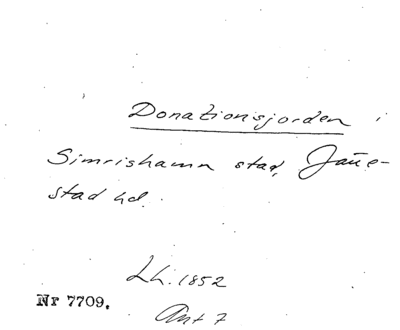 Donationsjorden i
Simrishamn stad, Järre-
stad hd.
Lh. 1852
Ant 7
Nr 7709.